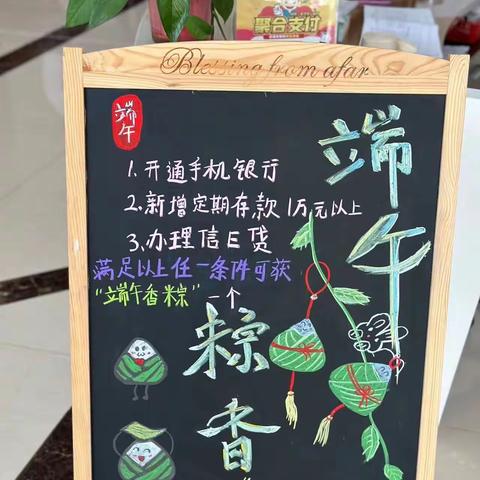 聚合支付
Blessing from afar
端午
端午
1.开通手机银行
2.新增定期存款1万元以上
3.办理信E贷
满足以上任一条件可获
“端午香粽”一个
粽香